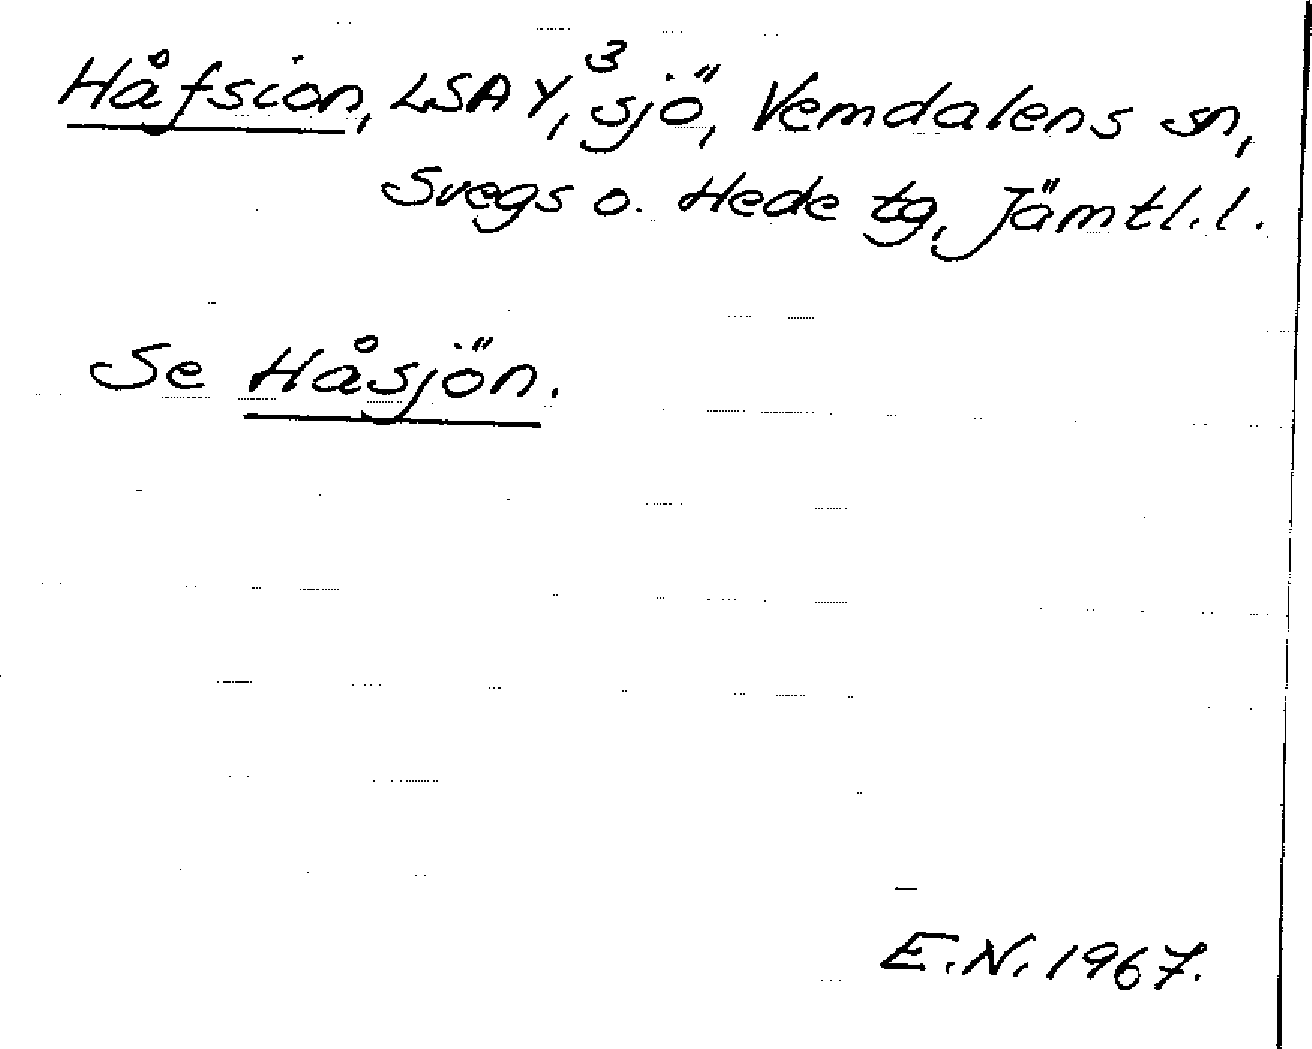 Håfsion, LSA Y,³ sjö, Vemdalens sn,
Svegs o. Hede tg, Jämtl. l.
Se Håsjön.
E.N. 1967.